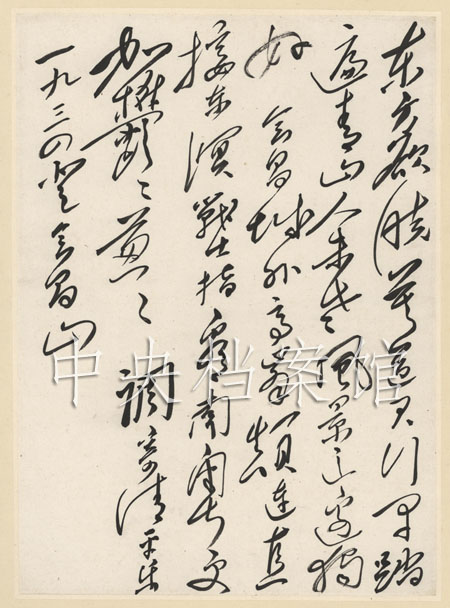 东方欲晓莫道君行早踏
遍青山人未老风景这边独
好 会昌城外高峰颠连直
接东溟戰士指看南粤更
加鬱〻葱〻 调寄清平乐
一九三四登会昌山
中央档案馆